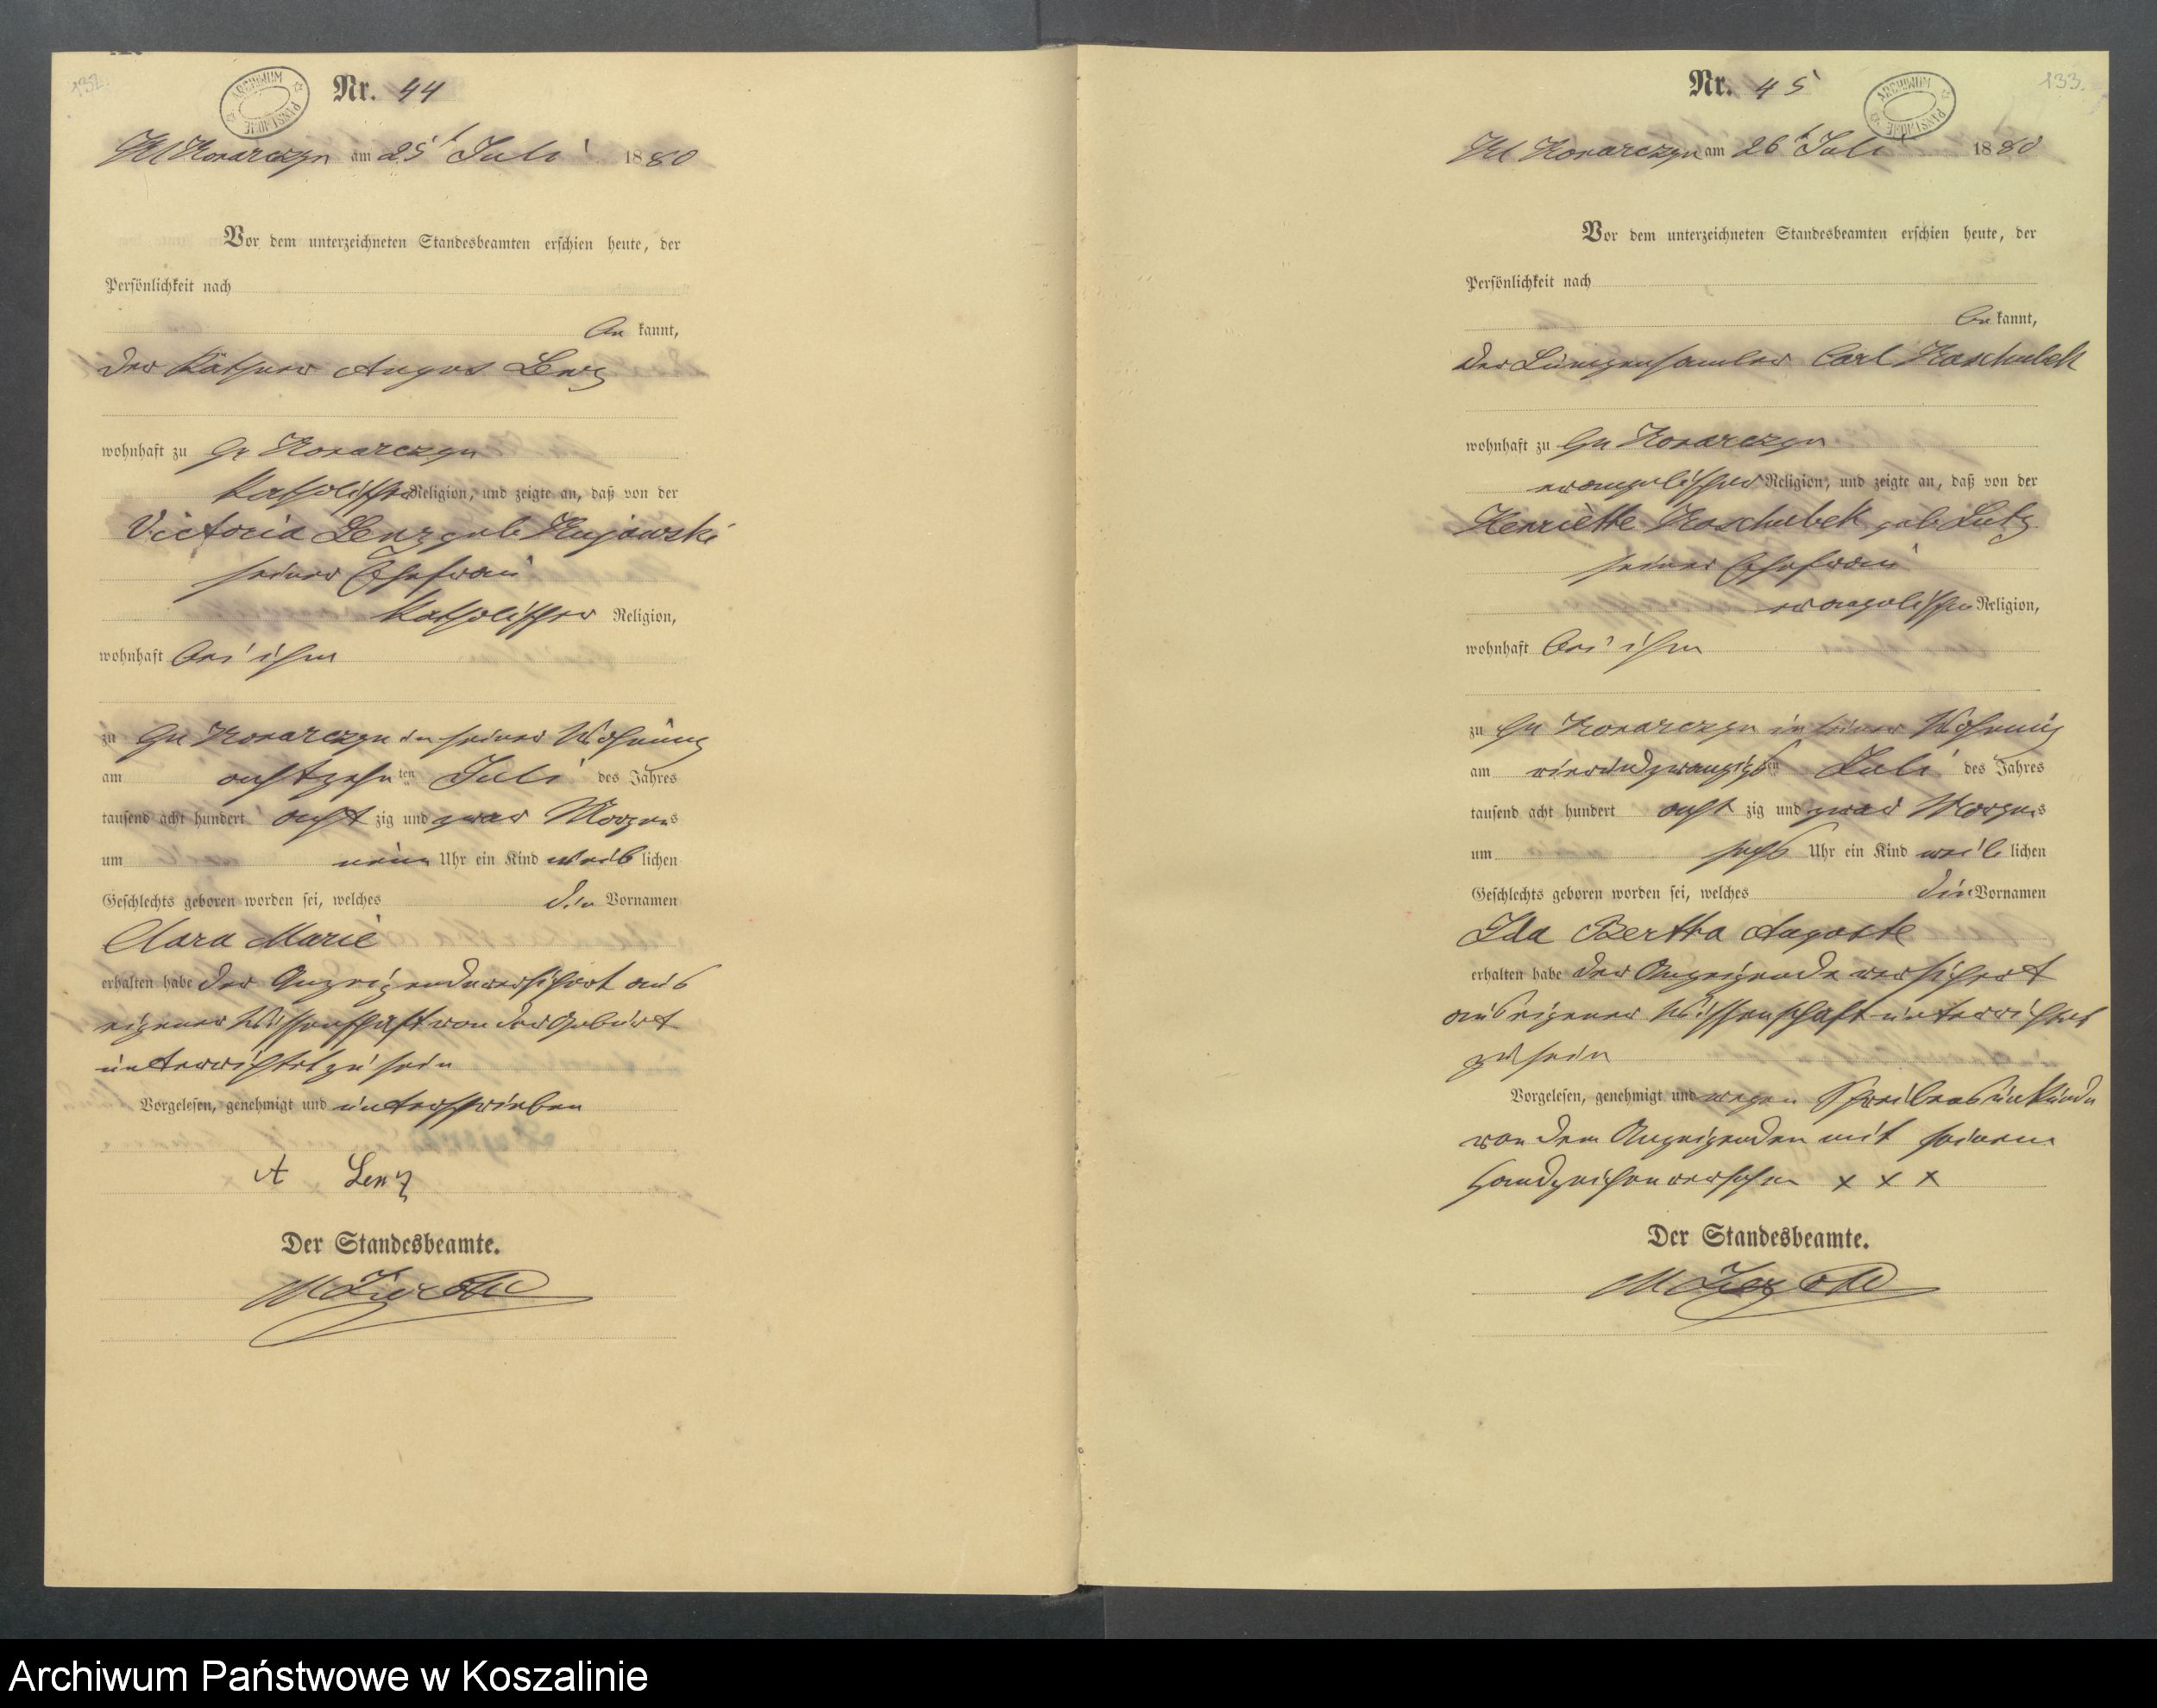 132.
ARCHIWUM PAŃSTWOWE
Nr. 44
Kl Konarczyn am 25t Juli 1880
Vor dem unterzeichneten Standesbeamten erschien heute, der
Persönlichkeit nach
be kannt,
der Käthner August Lenz
wohnhaft zu Gr Konarczyn
katholischer Religion, und zeigte an, daß von der
Victoria Lenz geb Kujawski
seiner Ehefrau
katholischer Religion,
wohnhaft bei ihm
zu Gr Konarczyn in seiner Wohnung
am achtzehn ten Juli des Jahres
tausend acht hundert acht zig und zwar Morgens
um neun Uhr ein Kind weib lichen
Geschlechts geboren worden sei, welches die Vornamen
Clara Marie
erhalten habe der Anzeigende versichert aus
eigener Wissenschaft von der Geburt
unterrichtet zu sein
Vorgelesen, genehmigt und unterschrieben
A Lenz
Der Standesbeamte.
133.
ARCHIWUM PAŃSTWOWE
Nr. 45
Kl Konarczyn am 26t Juli 1880
Vor dem unterzeichneten Standesbeamten erschien heute, der
Persönlichkeit nach
be kannt,
der Lumpensamler Carl Koschubek
wohnhaft zu Gr Konarczyn
evangelischer Religion, und zeigte an, daß von der
Henriette Koschubek geb Lutz
seiner Ehefrau
evangelischer Religion,
wohnhaft bei ihm
zu Gr Konarczyn in seiner Wohnung
am vierundzwanzigsten Juli des Jahres
tausend acht hundert acht zig und zwar Morgens
um sechs Uhr ein Kind weib lichen
Geschlechts geboren worden sei, welches die Vornamen
Ida Bertha Auguste
erhalten habe der Anzeigende versichert
aus eigener Wissenschaft unterrichtet
zu sein
Vorgelesen, genehmigt und wegen Schreibensunkunde
von dem Anzeigenden mit seinem
Handzeichen versehen x x x
Der Standesbeamte.
Archiwum Państwowe w Koszalinie